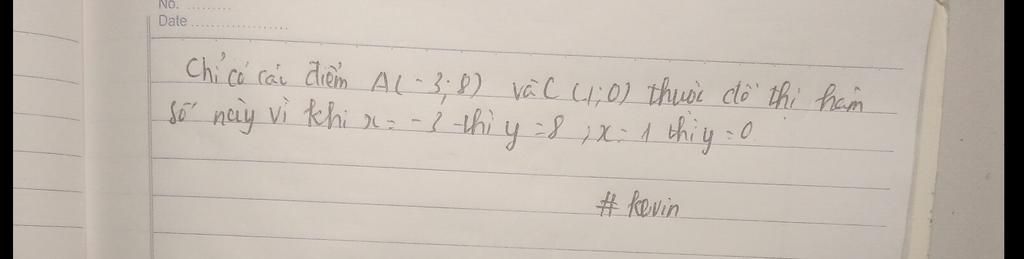 No. .........
Date ..................
Chỉ có các điểm A(-3; 8) và C (1; 0) thuộc đồ thị hàm
số này vì khi x = -3 thì y = 8 ; x = 1 thì y = 0
# kevin